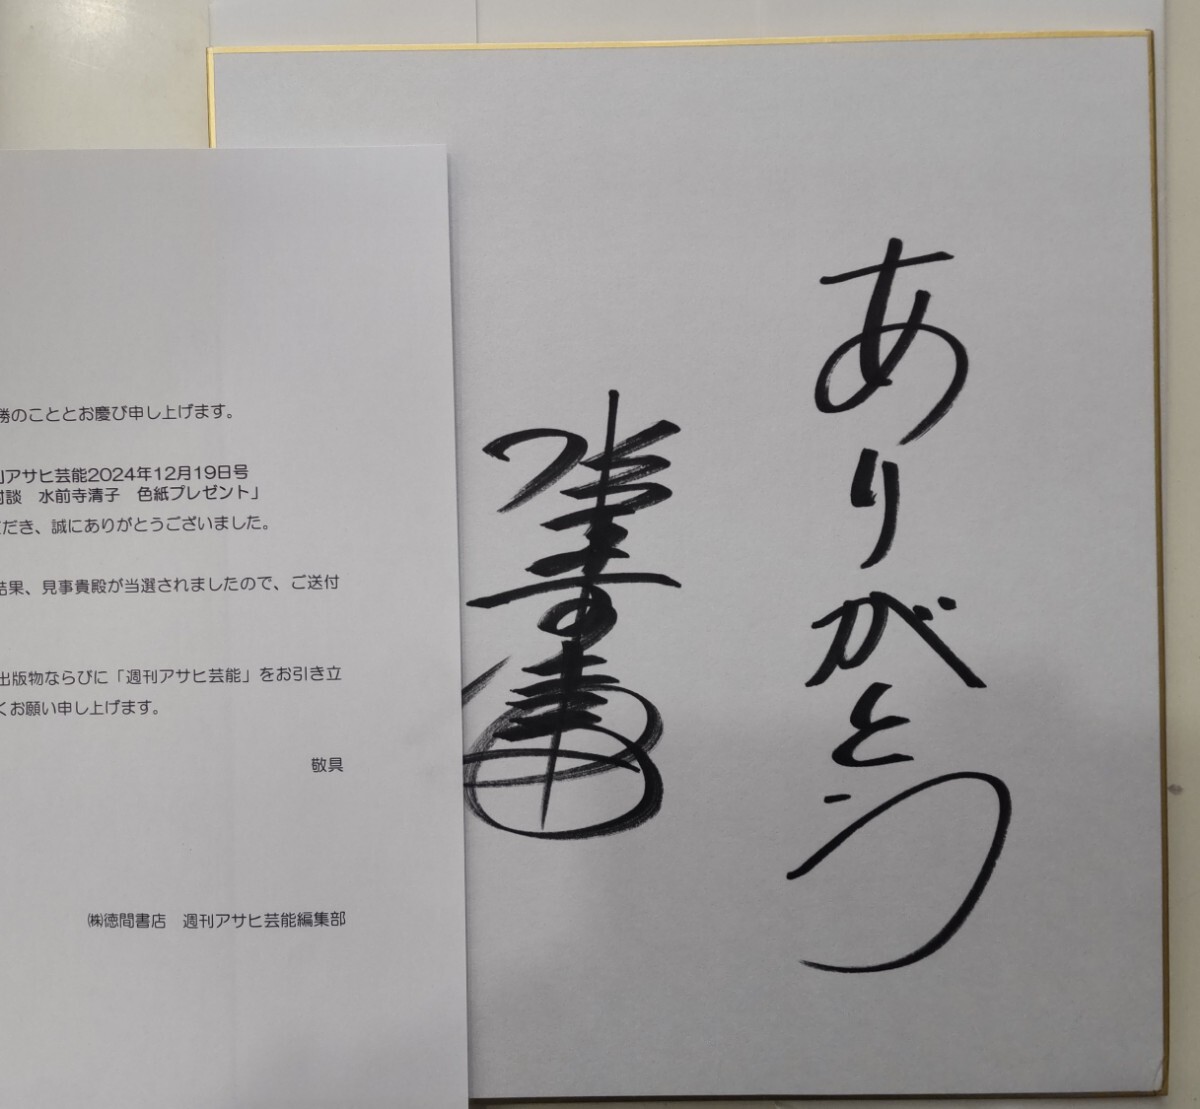 勝のこととお慶び申し上げます。
刊アサヒ芸能2024年12月19日号
対談　水前寺清子　色紙プレゼント」
ただき、誠にありがとうございました。
結果、見事貴殿が当選されましたので、ご送付
出版物ならびに「週刊アサヒ芸能」をお引き立
くお願い申し上げます。
敬具
㈱徳間書店　週刊アサヒ芸能編集部
ありがとう
水前寺清子